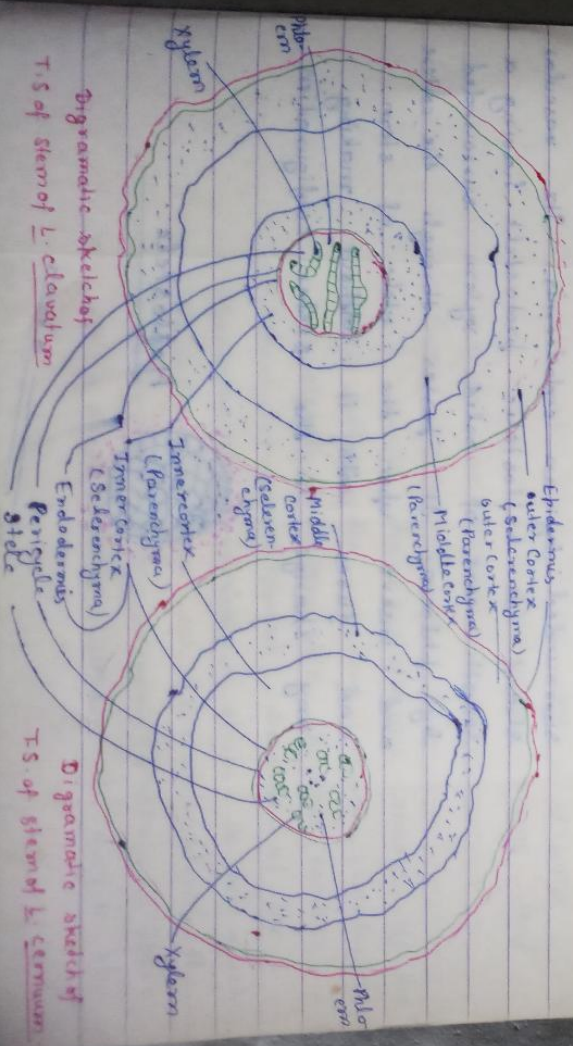 Phlo-
em
Xylem
Epidermis
outer cortex
(Sclerenchyma)
outer cortex
(Parenchyma)
Middle cortex
(Parenchyma)
Middle
cortex
(Scleren-
chyma)
Inner cortex
(Parenchyma)
Inner cortex
(Sclerenchyma)
Endodermis
Pericycle
Stele
Phlo
em
Xylem
Digramatic sketch of
T.S of stem of L. clavatum
Digramatic sketch of
T.S. of stem of L. cernuum